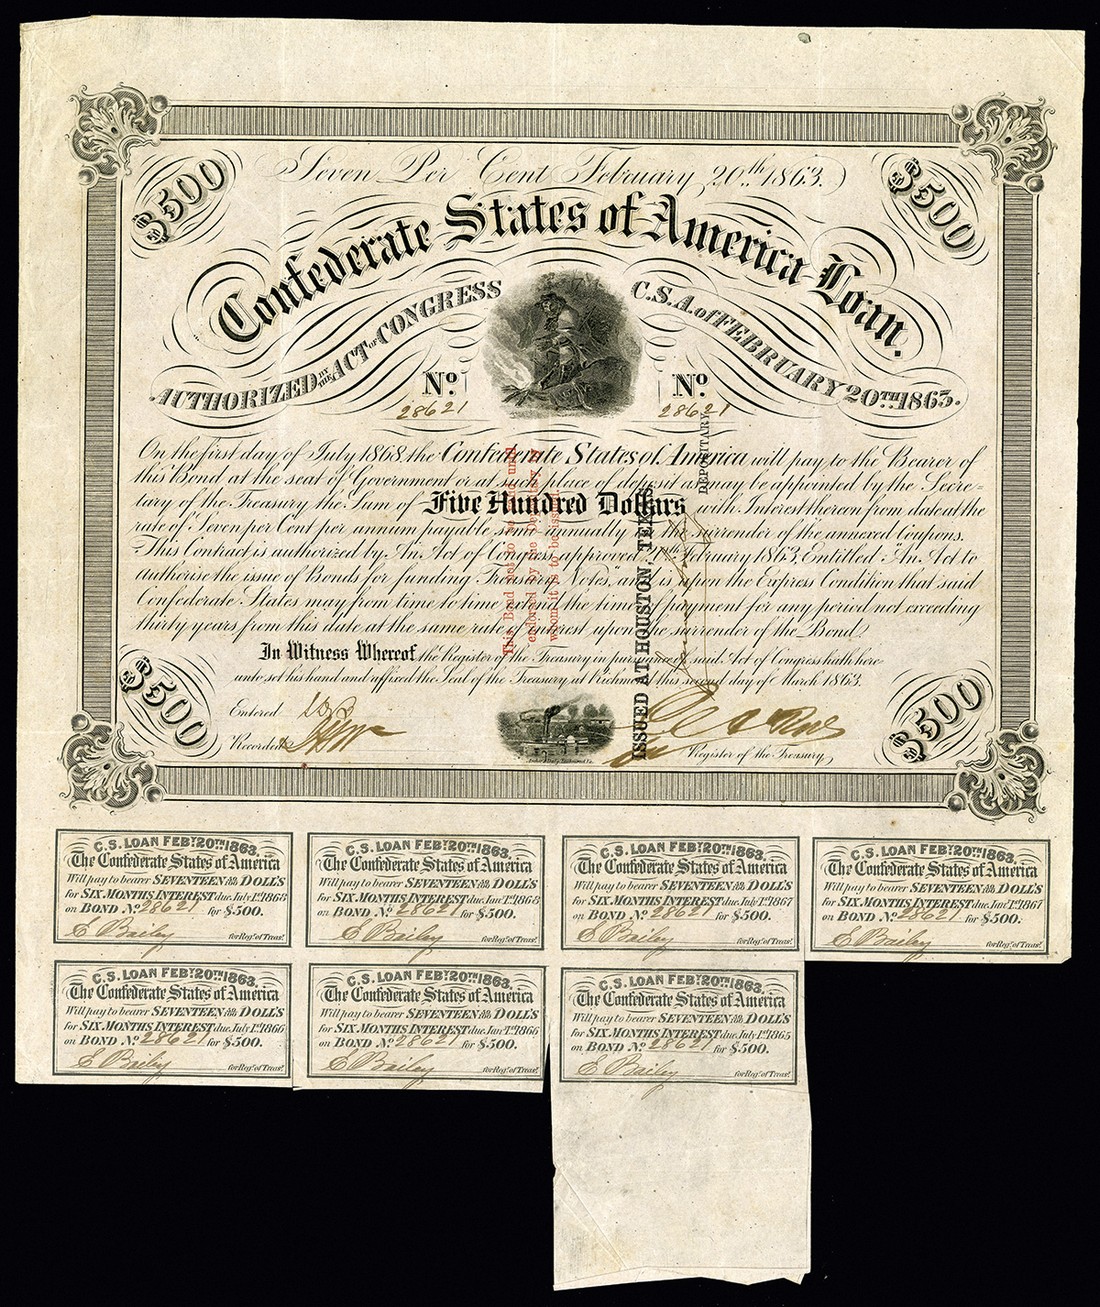 Seven Per Cent February 20th 1863.
$500
$500
Confederate States of America Loan.
AUTHORIZED BY THE ACT of CONGRESS
C.S.A. of FEBRUARY 20TH 1863.
No.
No.
28621
28621
On the first day of July 1868, the Confederate States of America will pay to the Bearer of
this Bond at the seat of Government or at such place of deposit as may be appointed by the Secre-
tary of the Treasury the Sum of Five Hundred Dollars with Interest thereon from date at the
rate of Seven per Cent per annum payable semi annually on the surrender of the annexed Coupons.
This Contract is authorized by An Act of Congress, approved 20th February 1863, Entitled "An Act to
authorise the issue of Bonds for funding Treasury Notes," and is upon the Express Condition that said
Confederate States may from time to time extend the time of payment for any period not exceeding
thirty years from this date at the same rate of interest upon the surrender of the Bond.
In Witness Whereof, the Register of the Treasury in pursuance of said Act of Congress hath here
unto set his hand and affixed the Seal of the Treasury at Richmond this second day of March 1863.
This Bond not to be valid until
endorsed by the Depositary by
whom it is to be issued.
ISSUED AT HOUSTON, TEXAS
DEPOSITARY
$500
$500
Entered
Recorded
Register of the Treasury
C.S. LOAN FEBY. 20TH 1863.
The Confederate States of America
Will pay to bearer SEVENTEEN 50/100 DOLL'S
for SIX MONTHS INTEREST due July 1st. 1868
on BOND No. 28621 for $500.
E Bailey
for Reg. of Treas.
C.S. LOAN FEBY. 20TH 1863.
The Confederate States of America
Will pay to bearer SEVENTEEN 50/100 DOLL'S
for SIX MONTHS INTEREST due Jany. 1st. 1868
on BOND No. 28621 for $500.
E Bailey
for Reg. of Treas.
C.S. LOAN FEBY. 20TH 1863.
The Confederate States of America
Will pay to bearer SEVENTEEN 50/100 DOLL'S
for SIX MONTHS INTEREST due July 1st. 1867
on BOND No. 28621 for $500.
E Bailey
for Reg. of Treas.
C.S. LOAN FEBY. 20TH 1863.
The Confederate States of America
Will pay to bearer SEVENTEEN 50/100 DOLL'S
for SIX MONTHS INTEREST due Jany. 1st. 1867
on BOND No. 28621 for $500.
E Bailey
for Reg. of Treas.
C.S. LOAN FEBY. 20TH 1863.
The Confederate States of America
Will pay to bearer SEVENTEEN 50/100 DOLL'S
for SIX MONTHS INTEREST due July 1st. 1866
on BOND No. 28621 for $500.
E Bailey
for Reg. of Treas.
C.S. LOAN FEBY. 20TH 1863.
The Confederate States of America
Will pay to bearer SEVENTEEN 50/100 DOLL'S
for SIX MONTHS INTEREST due Jany. 1st. 1866
on BOND No. 28621 for $500.
E Bailey
for Reg. of Treas.
C.S. LOAN FEBY. 20TH 1863.
The Confederate States of America
Will pay to bearer SEVENTEEN 50/100 DOLL'S
for SIX MONTHS INTEREST due July 1st. 1865
on BOND No. 28621 for $500.
E Bailey
for Reg. of Treas.